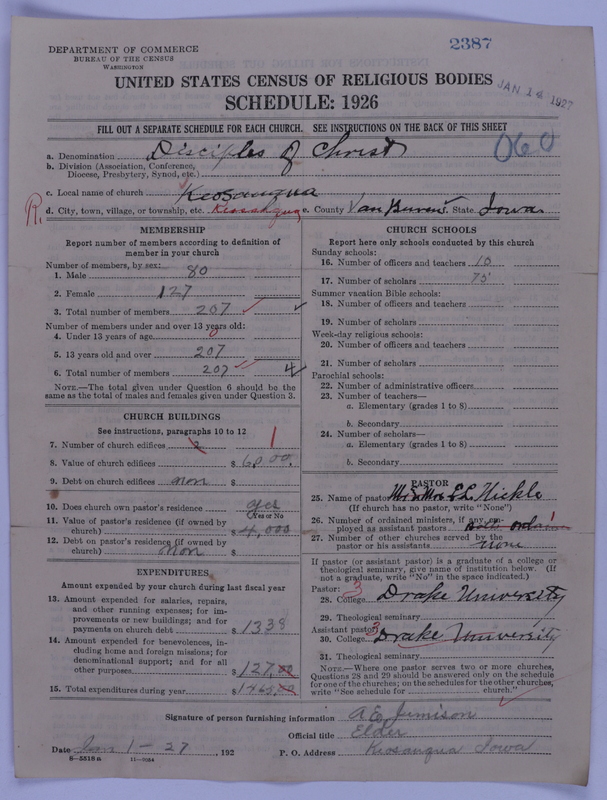 2387
DEPARTMENT OF COMMERCE
BUREAU OF THE CENSUS
WASHINGTON
JAN 14 1927
UNITED STATES CENSUS OF RELIGIOUS BODIES
SCHEDULE: 1926
FILL OUT A SEPARATE SCHEDULE FOR EACH CHURCH. SEE INSTRUCTIONS ON THE BACK OF THIS SHEET
060
a. Denomination Disciples of Christ
b. Division (Association, Conference, Diocese, Presbytery, Synod, etc.)
c. Local name of church Keosauqua
R. d. City, town, village, or township, etc. Keosauqua e. County Van Buren State Iowa
MEMBERSHIP
Report number of members according to definition of member in your church
Number of members, by sex:
1. Male 80
2. Female 127
3. Total number of members 207
Number of members under and over 13 years old:
4. Under 13 years of age 0
5. 13 years old and over 207
6. Total number of members 207 4
NOTE.—The total given under Question 6 should be the same as the total of males and females given under Question 3.
CHURCH BUILDINGS
See instructions, paragraphs 10 to 12
7. Number of church edifices 2 1
8. Value of church edifices $ 6000.
9. Debt on church edifices non $
10. Does church own pastor's residence yes
Yes or No
11. Value of pastor's residence (if owned by church) $ 4,000
12. Debt on pastor's residence (if owned by church) non $
EXPENDITURES
Amount expended by your church during last fiscal year
13. Amount expended for salaries, repairs, and other running expenses; for improvements or new buildings; and for payments on church debt $ 1338
14. Amount expended for benevolences, including home and foreign missions; for denominational support; and for all other purposes $ 127.00
15. Total expenditures during year $ 1465.00
CHURCH SCHOOLS
Report here only schools conducted by this church
Sunday schools:
16. Number of officers and teachers 10
17. Number of scholars 75
Summer vacation Bible schools:
18. Number of officers and teachers
19. Number of scholars
Week-day religious schools:
20. Number of officers and teachers
21. Number of scholars
Parochial schools:
22. Number of administrative officers
23. Number of teachers—
a. Elementary (grades 1 to 8)
b. Secondary
24. Number of scholars—
a. Elementary (grades 1 to 8)
b. Secondary
PASTOR
25. Name of pastor Mr & Mrs E L Hickle
(If church has no pastor, write "None")
26. Number of ordained ministers, if any, employed as assistant pastors
27. Number of other churches served by the pastor or his assistants none
If pastor (or assistant pastor) is a graduate of a college or theological seminary, give name of institution below. (If not a graduate, write "No" in the space indicated.)
Pastor: 3
28. College Drake University
29. Theological seminary
Assistant pastor: 3
30. College Drake University
31. Theological seminary
NOTE.—Where one pastor serves two or more churches, Questions 28 and 29 should be answered only on the schedule for one of the churches; on the schedules for the other churches, write "See schedule for church."
Signature of person furnishing information A E Jimison
Official title Elder
Date Jan 1 - 27, 192 P. O. Address Keosauqua Iowa
11—9034